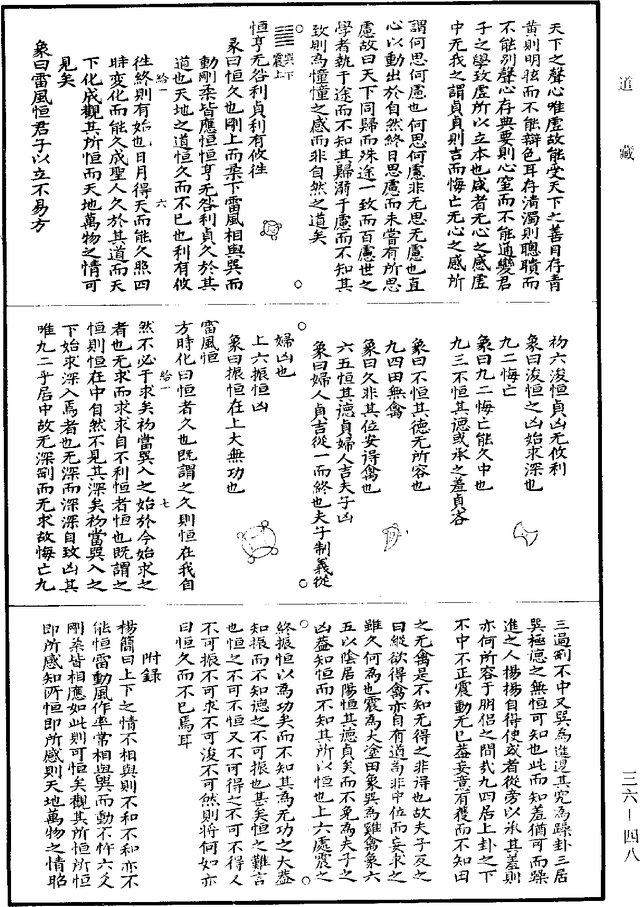 道藏
天下之聲心唯虛故能受天下之善目存青
黃則明眩而不能辯色耳存清濁則聰聵而
不能別聲心存典要則心窒而不能通變君
子之學致虛所以立本也咸者无心之感虛
中无我之謂貞貞則吉而悔亡无心之感所
謂何思何慮也何思何慮非无思无慮也直
心以動出於自然終日思慮而未嘗有所思
慮故曰天下同歸而殊途一致而百慮世之
學者執于途而不知其歸溺于慮而不知其
致則為憧憧之感而非自然之道矣
巽下震上
恒亨无咎利貞利有攸往
彖曰恒久也剛上而柔下雷風相與巽而
動剛柔皆應恒恒亨无咎利貞久於其
道也天地之道恒久而不已也利有攸
給一 六
往終則有始也日月得天而能久照四
時變化而能久成聖人久於其道而天
下化成觀其所恒而天地萬物之情可
見矣
象曰雷風恒君子以立不易方
初六浚恒貞凶无攸利
象曰浚恒之凶始求深也
九二悔亡
象曰九二悔亡能久中也
九三不恒其德或承之羞貞吝
象曰不恒其德无所容也
九四田無禽
象曰久非其位安得禽也
六五恒其德貞婦人吉夫子凶
象曰婦人貞吉從一而終也夫子制義從
婦凶也
上六振恒凶
象曰振恒在上大無功也
雷風恒
方時化曰恒者久也既謂之久則恒在我自
給一 七
然不必于求矣初當巽入之始於今始求之
者也无求而求求自不利恒者恒也既謂之
恒則恒在中自然不見其深矣初當巽入之
下始求深入焉者也无深而深深自致凶其
唯九二乎居中故无深剛而无求故悔亡九
三過剛不中又巽為進退其究為躁卦三居
巽極德之無恒可知也此而知羞猶可而躁
進之人揚揚自得使或者從旁以承其羞則
亦何所容于朋侶之間哉九四居上卦之下
不中不正震動无已葢妄意有獲而不知田
之无禽是不知无得之非得也故夫子反之
曰縱欲得禽亦自有道焉非中位而妄求之
雖久何為也震為大塗田象巽為雞禽象六
五以陰居陽恒其德貞矣而不免為夫子之
凶葢知恒而不知其所以恒也上六處震之
終振恒以為功矣而不知其為无功之大葢
知振而不知德之不可振也甚矣恒之難言
也恒之不可不恒又不可得之不可不得人
不可振不可求不可浚不可然則將何如亦
曰恒久而不已焉耳
附錄
楊簡曰上下之情不相與則不和不和亦不
能恒雷動風作率常相與巽而動不忤六爻
剛柔皆相應如此則可恒矣觀其所恒所恒
即所感知所恒即所感則天地萬物之情昭
三六—四八